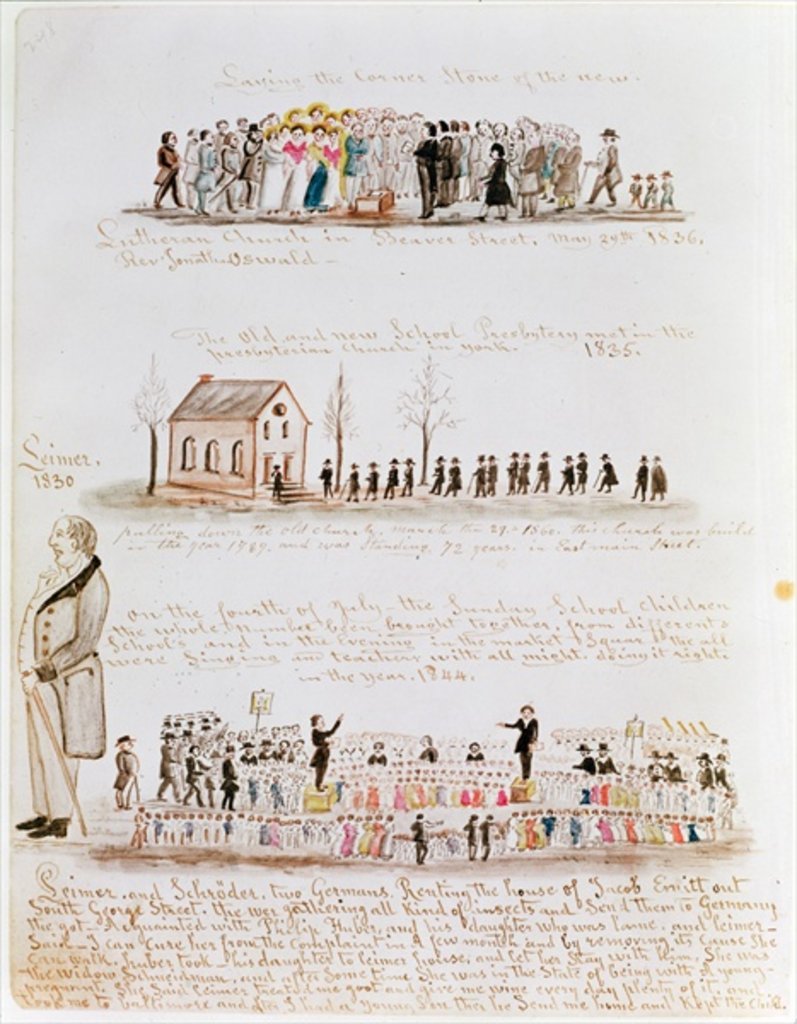 Laying the Corner Stone of the new.
Lutheran Church in Beaver Street, May 29th 1836.
Rev. Jonathan Oswald —
The Old, and new School Presbytery met in the
presbyterian Church in york. 1835.
Leimer.
1830
pulling down the old church, march the 29. 1860. this church was build
in the year 1789. and was Standing, 72 years. in East main Street.
On the fourth of July — the Sunday School Children
the whole number been brought together, from differents
School's and in the Evening in the market Square the all
were Singing and teachers with all might. doing it right
in the year. 1844.
Leimer. and Schröder. two Germans. Renting the house of Jacob Emitt out
South George Street. the wer gathering all kind of insects and Send them to Germany
the got — Acquainted with Philip Huber, and his daughter who was lame. and leimer —
Said — I can Cure her from the Complaint in A few month and by removing its Cause She
Can walk. huber took — his daughter to leimer house, and let her Stay with him, She was
the widow and after Some time She was in the State of being with of young —
pregnant. She Said Leimer treated me goot and give me wine every day plenty of it, and
took me to baltimore and after I had a young Son ther he Send me home and Kept the Child.